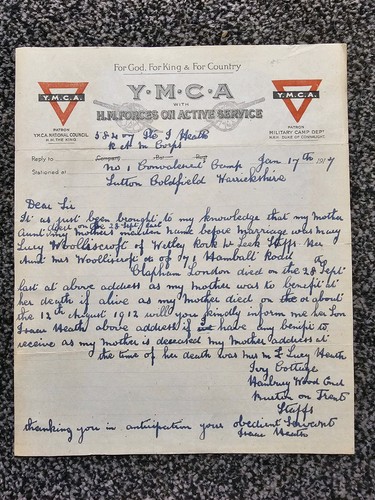 For God, For King & For Country
Y.M.C.A.
Y.M.C.A
WITH
H.M. FORCES ON ACTIVE SERVICE
Y.M.C.A.
PATRON
Y.M.C.A. NATIONAL COUNCIL
H.M. THE KING.
PATRON
MILITARY CAMP DEPT
H.R.H. DUKE OF CONNAUGHT.
58407 Pte I Heath
R A M Corps
Reply to Company Bat. Reg.
Stationed at No 1 Convalecent Camp Jan 17th 1917
Sutton Coldfield Warrickshire
Dear Sir
It as just been brought to my knowledge that my Mother
died on the 28 Sept last
Aunt my Mothers maiden Name before Marriage was Mary
Lucy Woolliscroft of Wetley Rock Nr Leek Staffs Her
Aunt Mrs Woolliscroft of 71 Hambalt Road
Clapham London died on the 28 Sept
last at above address as my Mother was to benefit at
her death if alive as my Mother died on the or about
the 12th August 1912 will you kindly inform me her Son
Isaac Heath above address if we have any benifit to
receive as my Mother is deseced my Mother address at
the time of her death was Mrs M L Lucy Heath
Ivy Cottage
Wood End
Burton on Trent
Staffs
thanking you in anticipation your obedient Servant
Isaac Heath